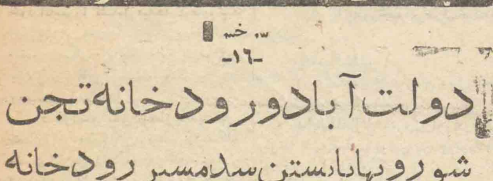 -۱۶-
دولت آباد و رودخانه تجن
شوروبها با بستن سد مسیر رودخانه